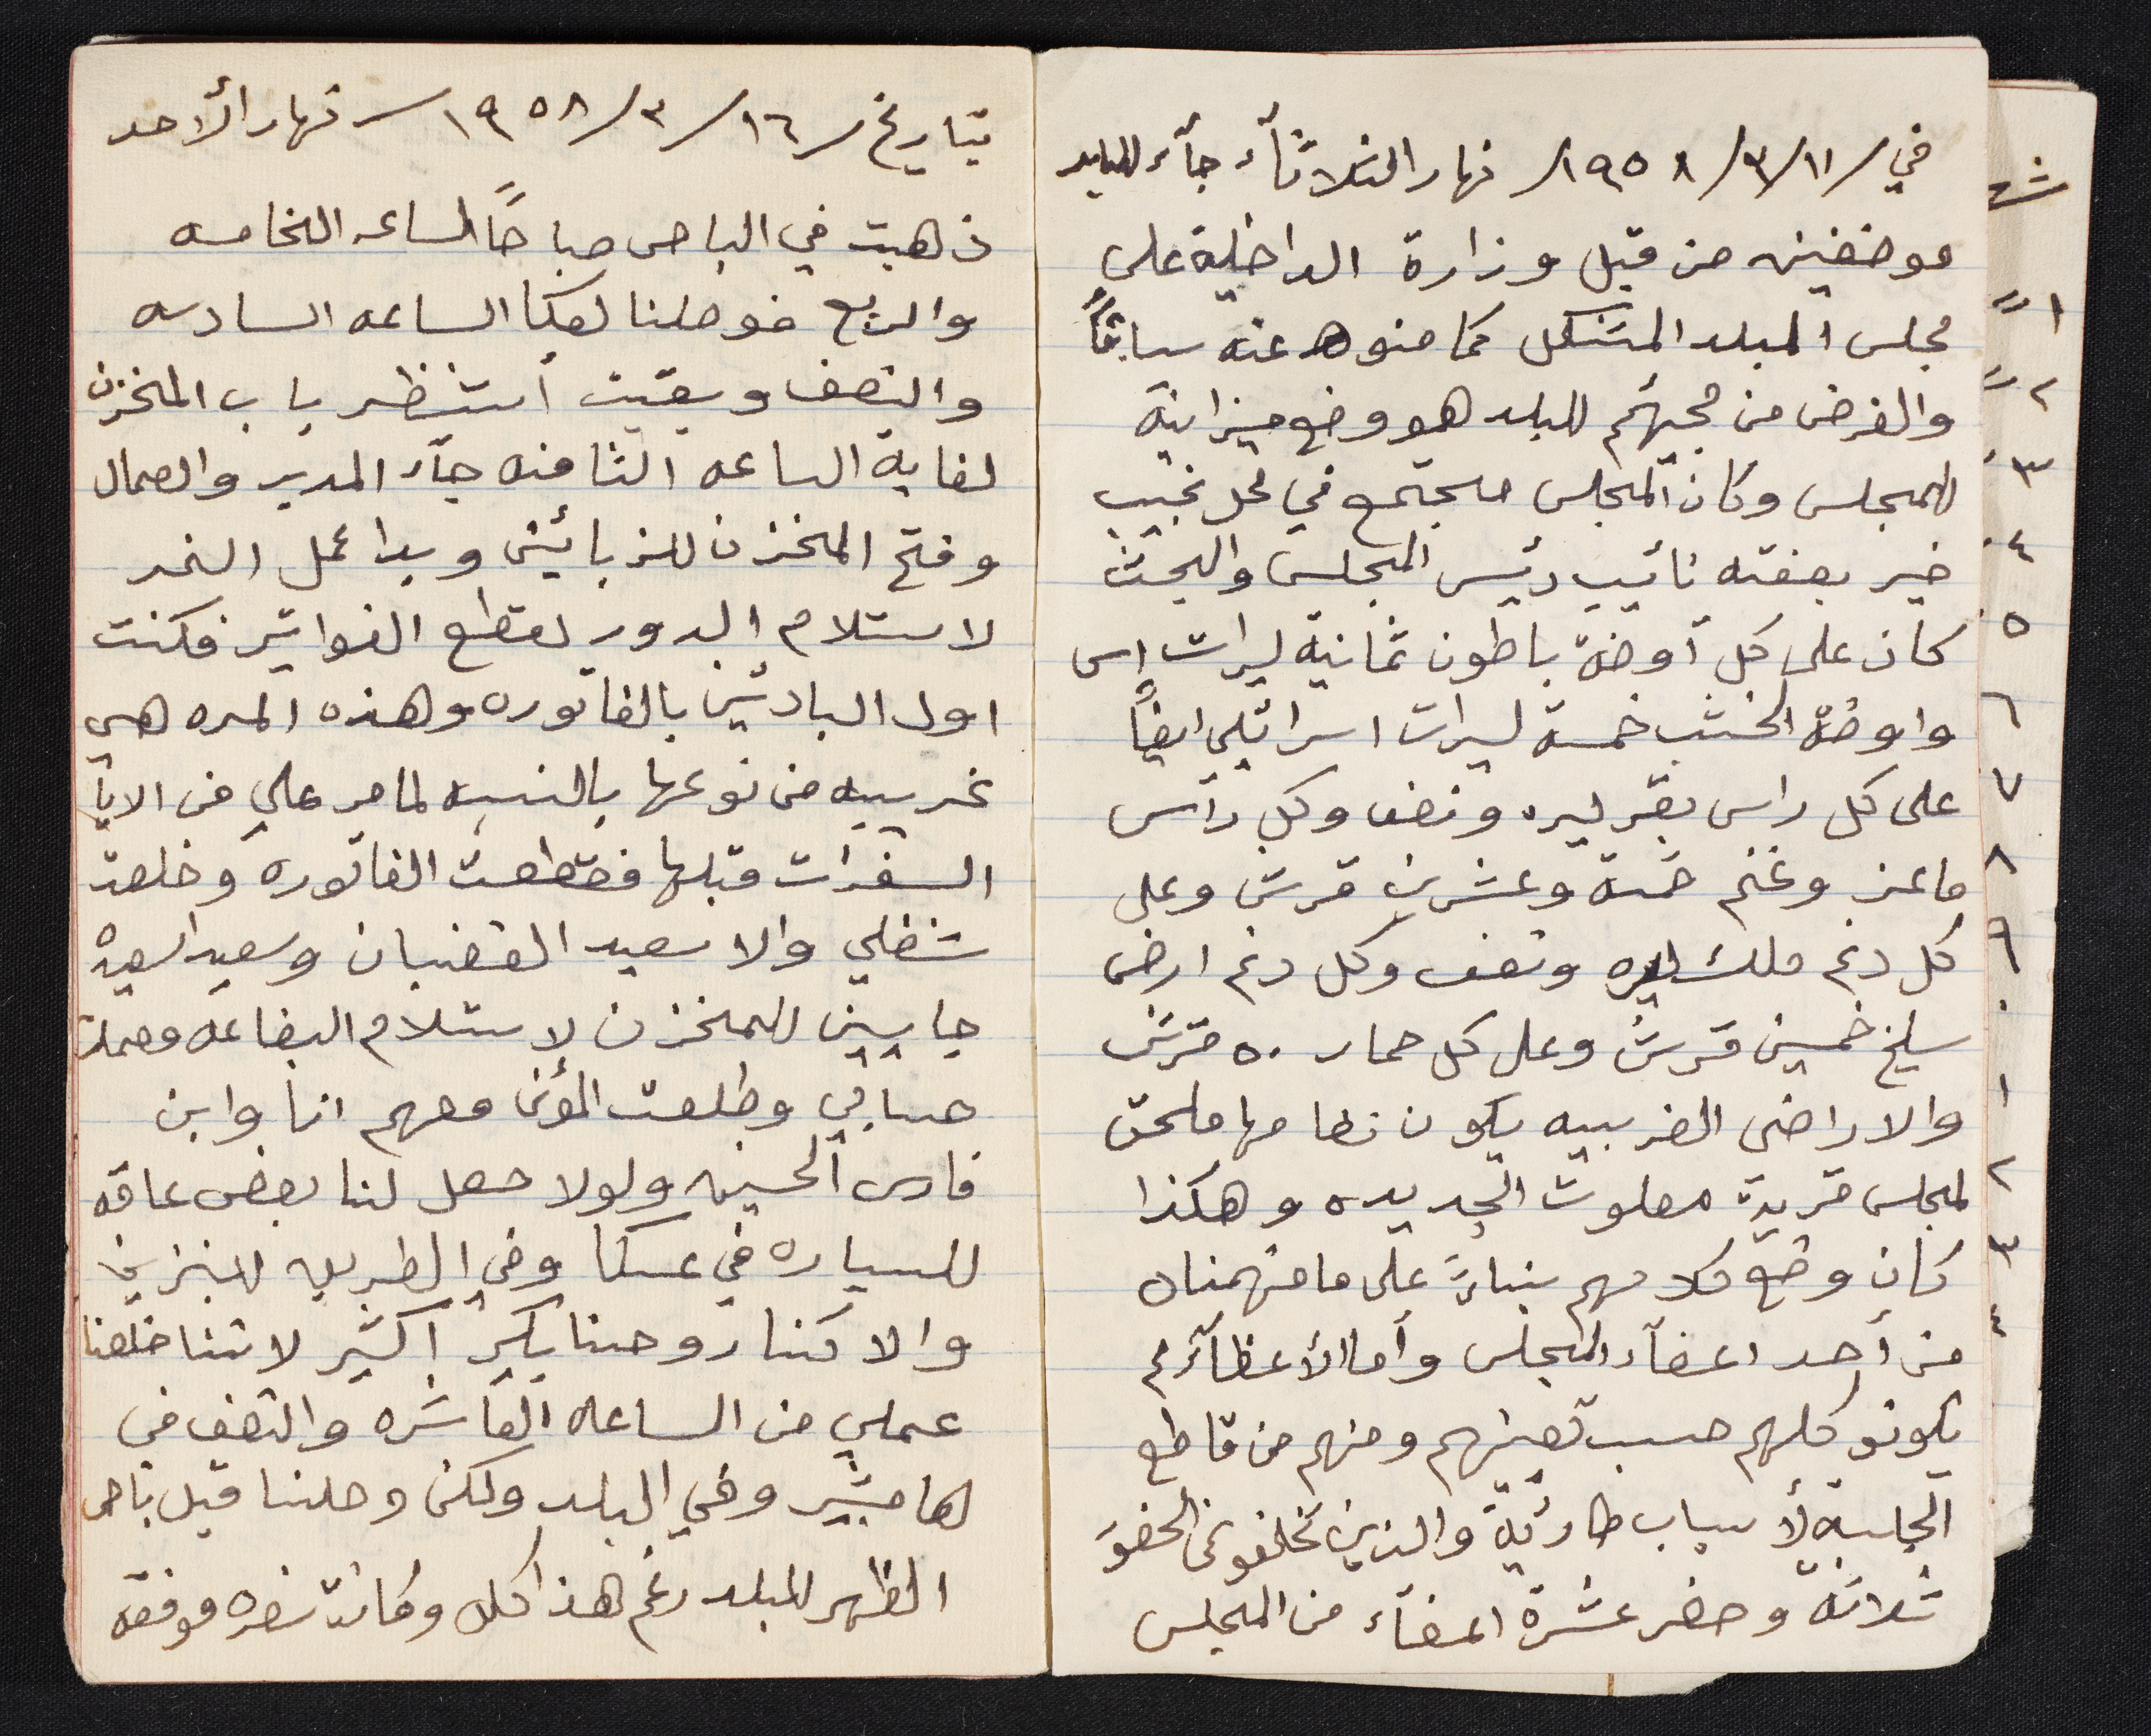 في /١١/٣/١٩٥٨/ نهار الثلاثآء جآء للبلد
موضفين من قبل وزارة الداخلية على
مجلس البلد المتشكل كما منوه عنه سابقاً
والغرض من مجيئهم للبلد هو وضع ميزانية
للمجلس وكان المجلس مجتمع في محل نجيب
خير بصفته نائيب رئيس المجلس والبحث
كان على كل أوضة باطون ثمانية ليرات اس
واوضة الخشب خمسة ليرات اسرائلي ايضاً
على كل راس بقر ليره ونصف وكل رأس
ماعز وغنم خمسة وعشرين قرش وعلى
كل دنم ملك ليره ونصف وكل دنم ارض
سليخ خمسين قرش وعلى كل حمار ٥٠ قرش
والاراضي الغربيه يكون نظامها ملحق
لمجلس قرية معلوت الجديده وهكذا
كان وضع كلامهم بناءً على ما فهمناه
من أحد اعضآء المجلس وأما الأعظآء لم
يكونو كلهم حسب تعينهم ومنهم من قاطع
الجلسة لأسباب طارئة والذين تخلفو عن الحضور
ثلاثة وحضر عشرة اعضآء من المجلس
بتاريخ /١٦/٣/١٩٥٨/ نهار الأحد
ذهبت في الباص صباحاً الساعه الخامسه
والربع فوصلنا لعكا الساعه السادسه
والنصف وبقيت أستنظر باب المخزن
لغاية الساعه الثامنه جآء المدير والعمال
وفتح المخزن للزبائين وبدا عمل النمر
لاستلام الدور لقطع الفواتير فكنت
اول البادئين بالفاتوره وهذه المره هي
غريبه من نوعها بالنسبه لما مر علي من الايا
السفرات قبلها فقطعت الفاتوره وخلصت
شغلي والا سعيد الغضبان وسعيد السعيد
جايين للمخزن لاستلام البضاعه وعملت
حسابي وطلعت المؤن معهم انا وابن
فارس الحسين ولولا حصل لنا بعض عاقه
للسياره في عكا وفي الطريق للبنزين
والا كنا روحنا بكير أكثير لاننا خلصنا
عملي من الساعه العاشره والنصف في
وفي البلد ولكن وصلنا قبل باص
الظهر للبلد رغم هذا كله وكانت سفره موفقه
ش
١ً
٢ً
٣
٤
٥
٦
٧
٨
٩
٠
١
٢
٣
٤